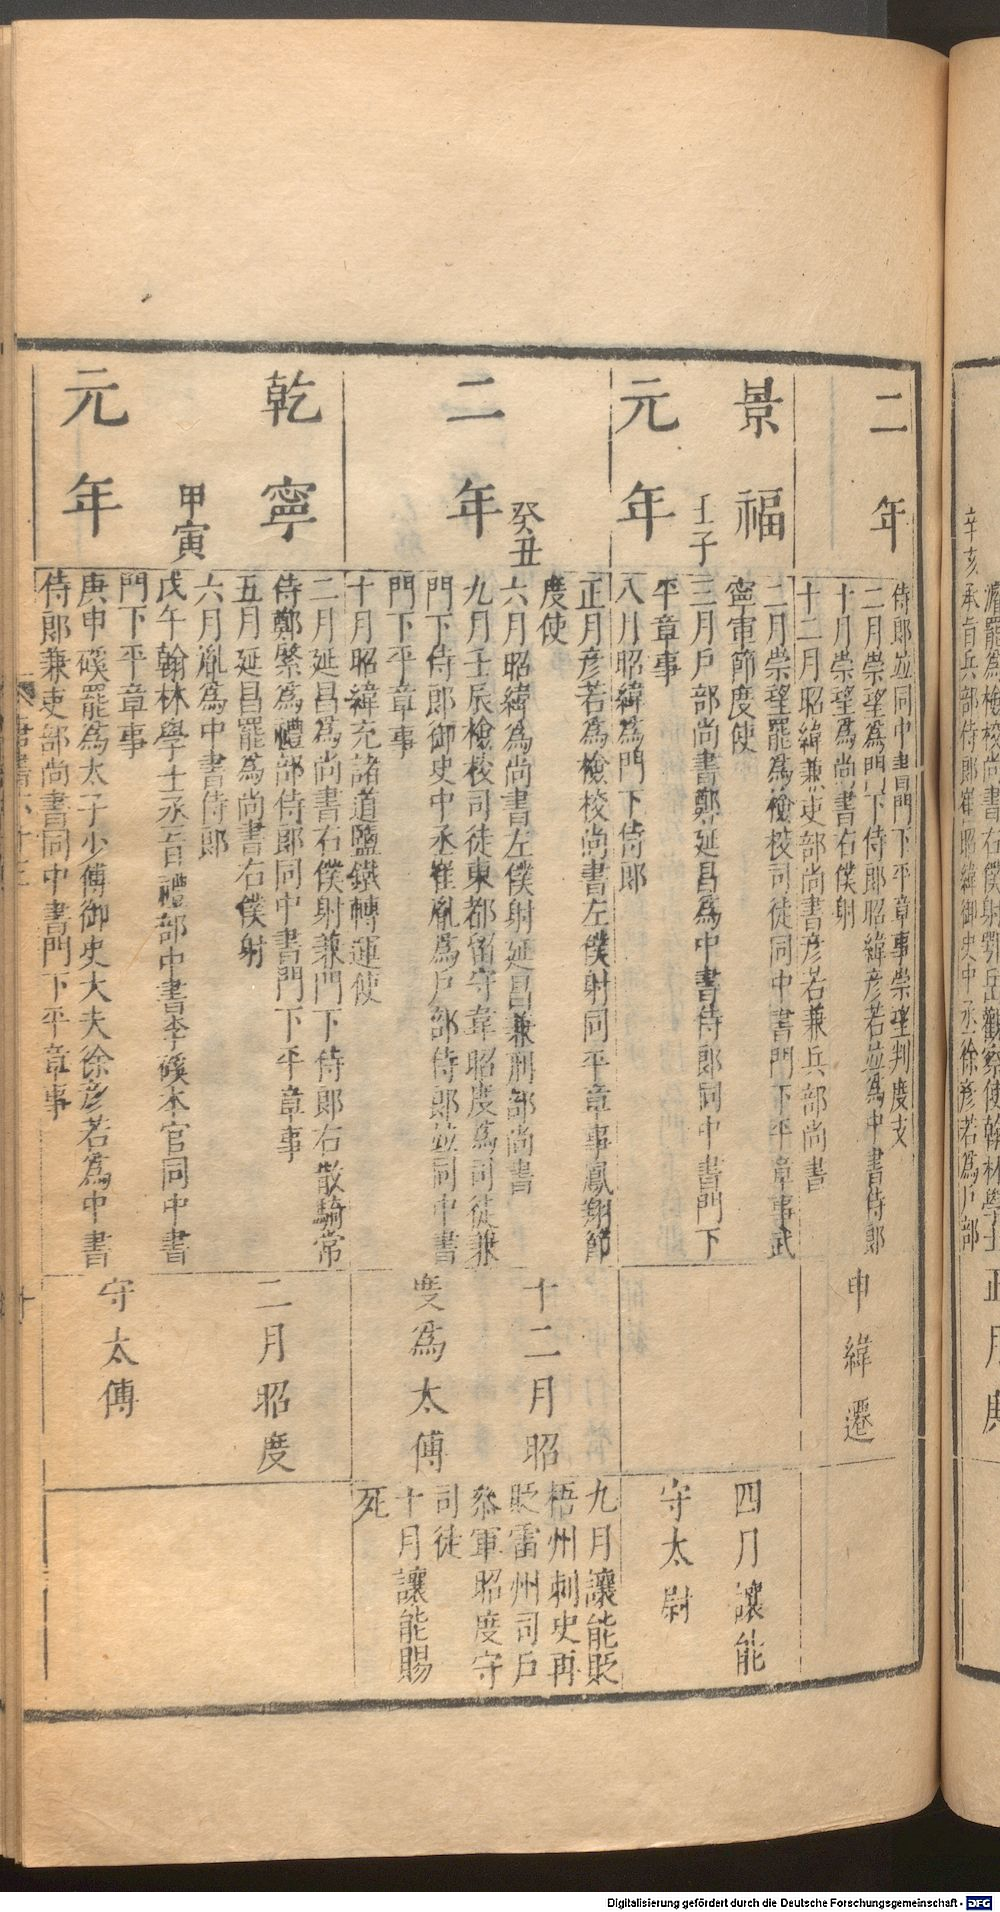 漼罷爲檢校尚書右僕射鄂岳觀察使翰林學士
承旨兵部侍郎崔昭緯御史中丞徐彥若爲戶部
辛亥
二年
侍郎並同中書門下平章事崇望判度支
二月崇望爲門下侍郎昭緯彥若並爲中書侍郎
十月崇望爲尚書右僕射
十二月昭緯兼吏部尚書彥若兼兵部尚書
申緯遷
景福
元年
壬子
二月崇望罷爲檢校司徒同中書門下平章事武
寧軍節度使
三月戶部尚書鄭延昌爲中書侍郎同中書門下
平章事
八月昭緯爲門下侍郎
四月讓能
守太尉
二年
癸丑
正月彥若爲檢校尚書左僕射同平章事鳳翔節
度使
六月昭緯爲尚書左僕射延昌兼刑部尚書
九月壬辰檢校司徒東都留守韋昭度爲司徒兼
門下侍郎御史中丞崔胤爲戶部侍郎並同中書
門下平章事
十月昭緯充諸道鹽鐵轉運使
十二月昭
度爲太傅
九月讓能貶
梧州刺史再
貶雷州司戶
參軍昭度守
司徒
十月讓能賜
死
乾寧
元年
甲寅
二月延昌爲尚書右僕射兼門下侍郎右散騎常
侍鄭綮爲禮部侍郎同中書門下平章事
五月延昌罷爲尚書右僕射
六月胤爲中書侍郎
戊午翰林學士丞旨禮部中書李磎本官同中書
門下平章事
庚申磎罷爲太子少傅御史大夫徐彥若爲中書
侍郎兼吏部尚書同中書門下平章事
二月昭度
守太傅
Digitalisierung gefördert durch die Deutsche Forschungsgemeinschaft - DFG